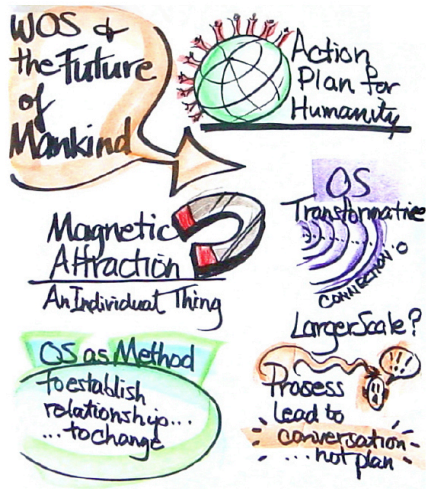 WOS &
the Future
of
Mankind
Action
Plan for
Humanity
Magnetic
Attraction
An Individual Thing
OS
Transformative
CONNECTION
Larger Scale?
OS as Method
to establish
relationship...
...to change
Prosess
lead to
conversation
...not plan
!!